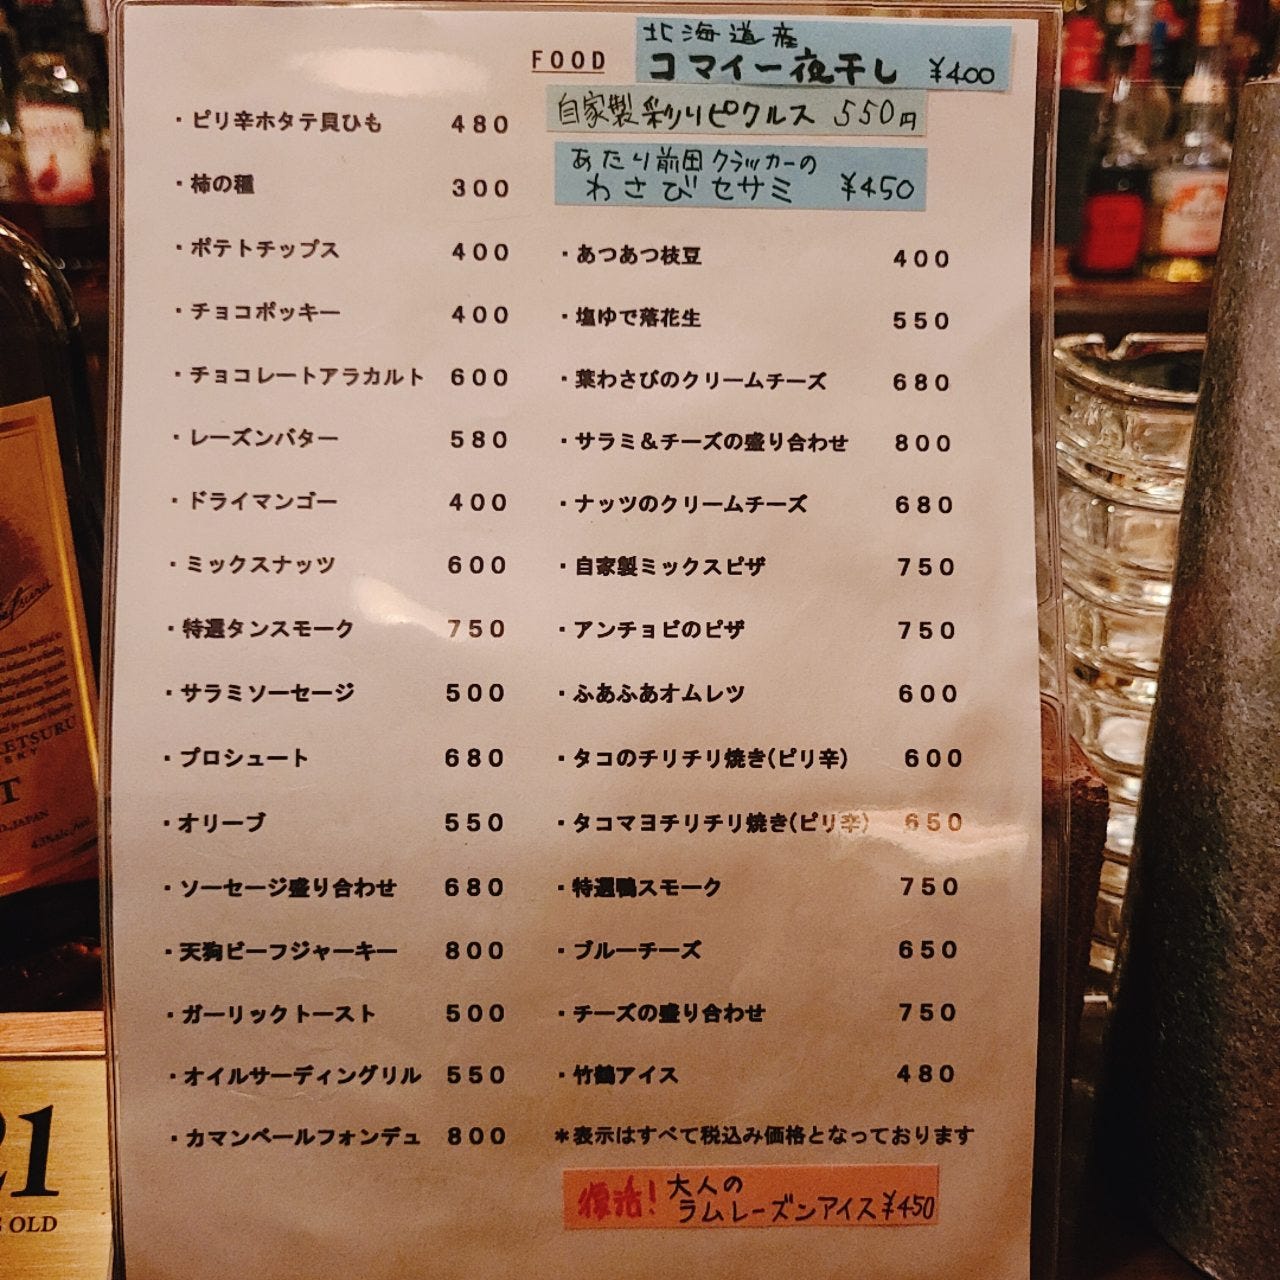 FOOD
北海道産
コマイ一夜干し ¥400
自家製彩りピクルス 550円
あたり前田クラッカーの
わさびセサミ ¥450
・ピリ辛ホタテ貝ひも 480
・柿の種 300
・ポテトチップス 400
・チョコポッキー 400
・チョコレートアラカルト 600
・レーズンバター 580
・ドライマンゴー 400
・ミックスナッツ 600
・特選タンスモーク 750
・サラミソーセージ 500
・プロシュート 680
・オリーブ 550
・ソーセージ盛り合わせ 680
・天狗ビーフジャーキー 800
・ガーリックトースト 500
・オイルサーディングリル 550
・カマンベールフォンデュ 800
・あつあつ枝豆 400
・塩ゆで落花生 550
・葉わさびのクリームチーズ 680
・サラミ&チーズの盛り合わせ 800
・ナッツのクリームチーズ 680
・自家製ミックスピザ 750
・アンチョビのピザ 750
・ふあふあオムレツ 600
・タコのチリチリ焼き(ピリ辛) 600
・タコマヨチリチリ焼き(ピリ辛) 650
・特選鴨スモーク 750
・ブルーチーズ 650
・チーズの盛り合わせ 750
・竹鶴アイス 480
*表示はすべて税込み価格となっております
復活! 大人の
ラムレーズンアイス ¥450
21
OLD